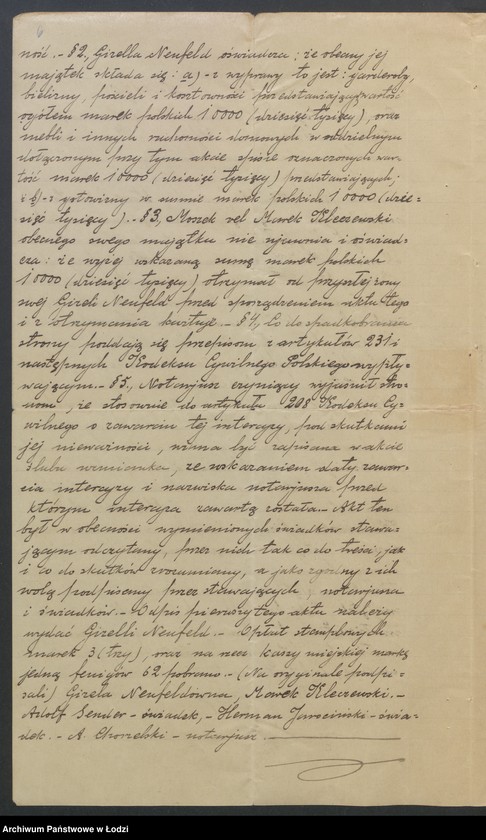 6
ność. - § 2, Gizella Neufeld oświadcza: że obecny jej
majątek składa się: a) - z wyprawy to jest: garderoby,
bielizny, pościeli i kosztowności przedstawiających wartość
ogółem marek polskich 10000 (dziesięć tysięcy), oraz
mebli i innych ruchomości domowych w oddzielnym
dołączonym przy tym akcie spisie oznaczonych war-
tość marek 10000 (dziesięć tysięcy) przedstawiających;
i b) - z gotowizny w sumie marek polskich 10000 (dzie-
sięć tysięcy). - § 3, Moszek vel Marek Kleczewski
obecnego swego majątku nie ujawnia i oświad-
cza: że wyżej wskazaną sumę marek polskich
10000 (dziesięć tysięcy) otrzymał od przyszłej żony
swej Gizeli Neufeld przed sporządzeniem aktu tego
i z otrzymania kwituje. - § 4, Co do spadkobrania
strony poddają się przepisom z artykułów 231 i
następnych Kodeksu Cywilnego Polskiego wypły-
wającym. - § 5, Notarjusz czyniący wyjaśnił stro-
nom, że stosownie do artykułu 208 Kodeksu Cy-
wilnego o zawarciu tej intercyzy, pod skutkami
jej nieważności, winna być zapisana w akcie
ślubu wzmianka, ze wskazaniem daty zawar-
cia intercyzy i nazwiska notarjusza przed
którym intercyza zawartą została. - Akt ten
był w obecności wymienionych świadków stawa-
jącym odczytany, przez nich tak co do treści, jak
i co do skutków zrozumiany, a jako zgodny z ich
wolą podpisany przez stawających, notarjusza
i świadków. - Odpis pierwszy tego aktu należy
wydać Gizelli Neufeld. - Opłat stemplowych
marek 3 (trzy), oraz na rzecz kasy miejskiej marką
jedną fenigów 62 pobrano. - (Na oryginale podpi-
sali) Gizela Neufeldówna, Marek Kleczewski. -
Adolf Sender - świadek, - Herman Jarociński - świa-
dek. - A. Chorzelski - notarjusz. -
Archiwum Państwowe w Łodzi